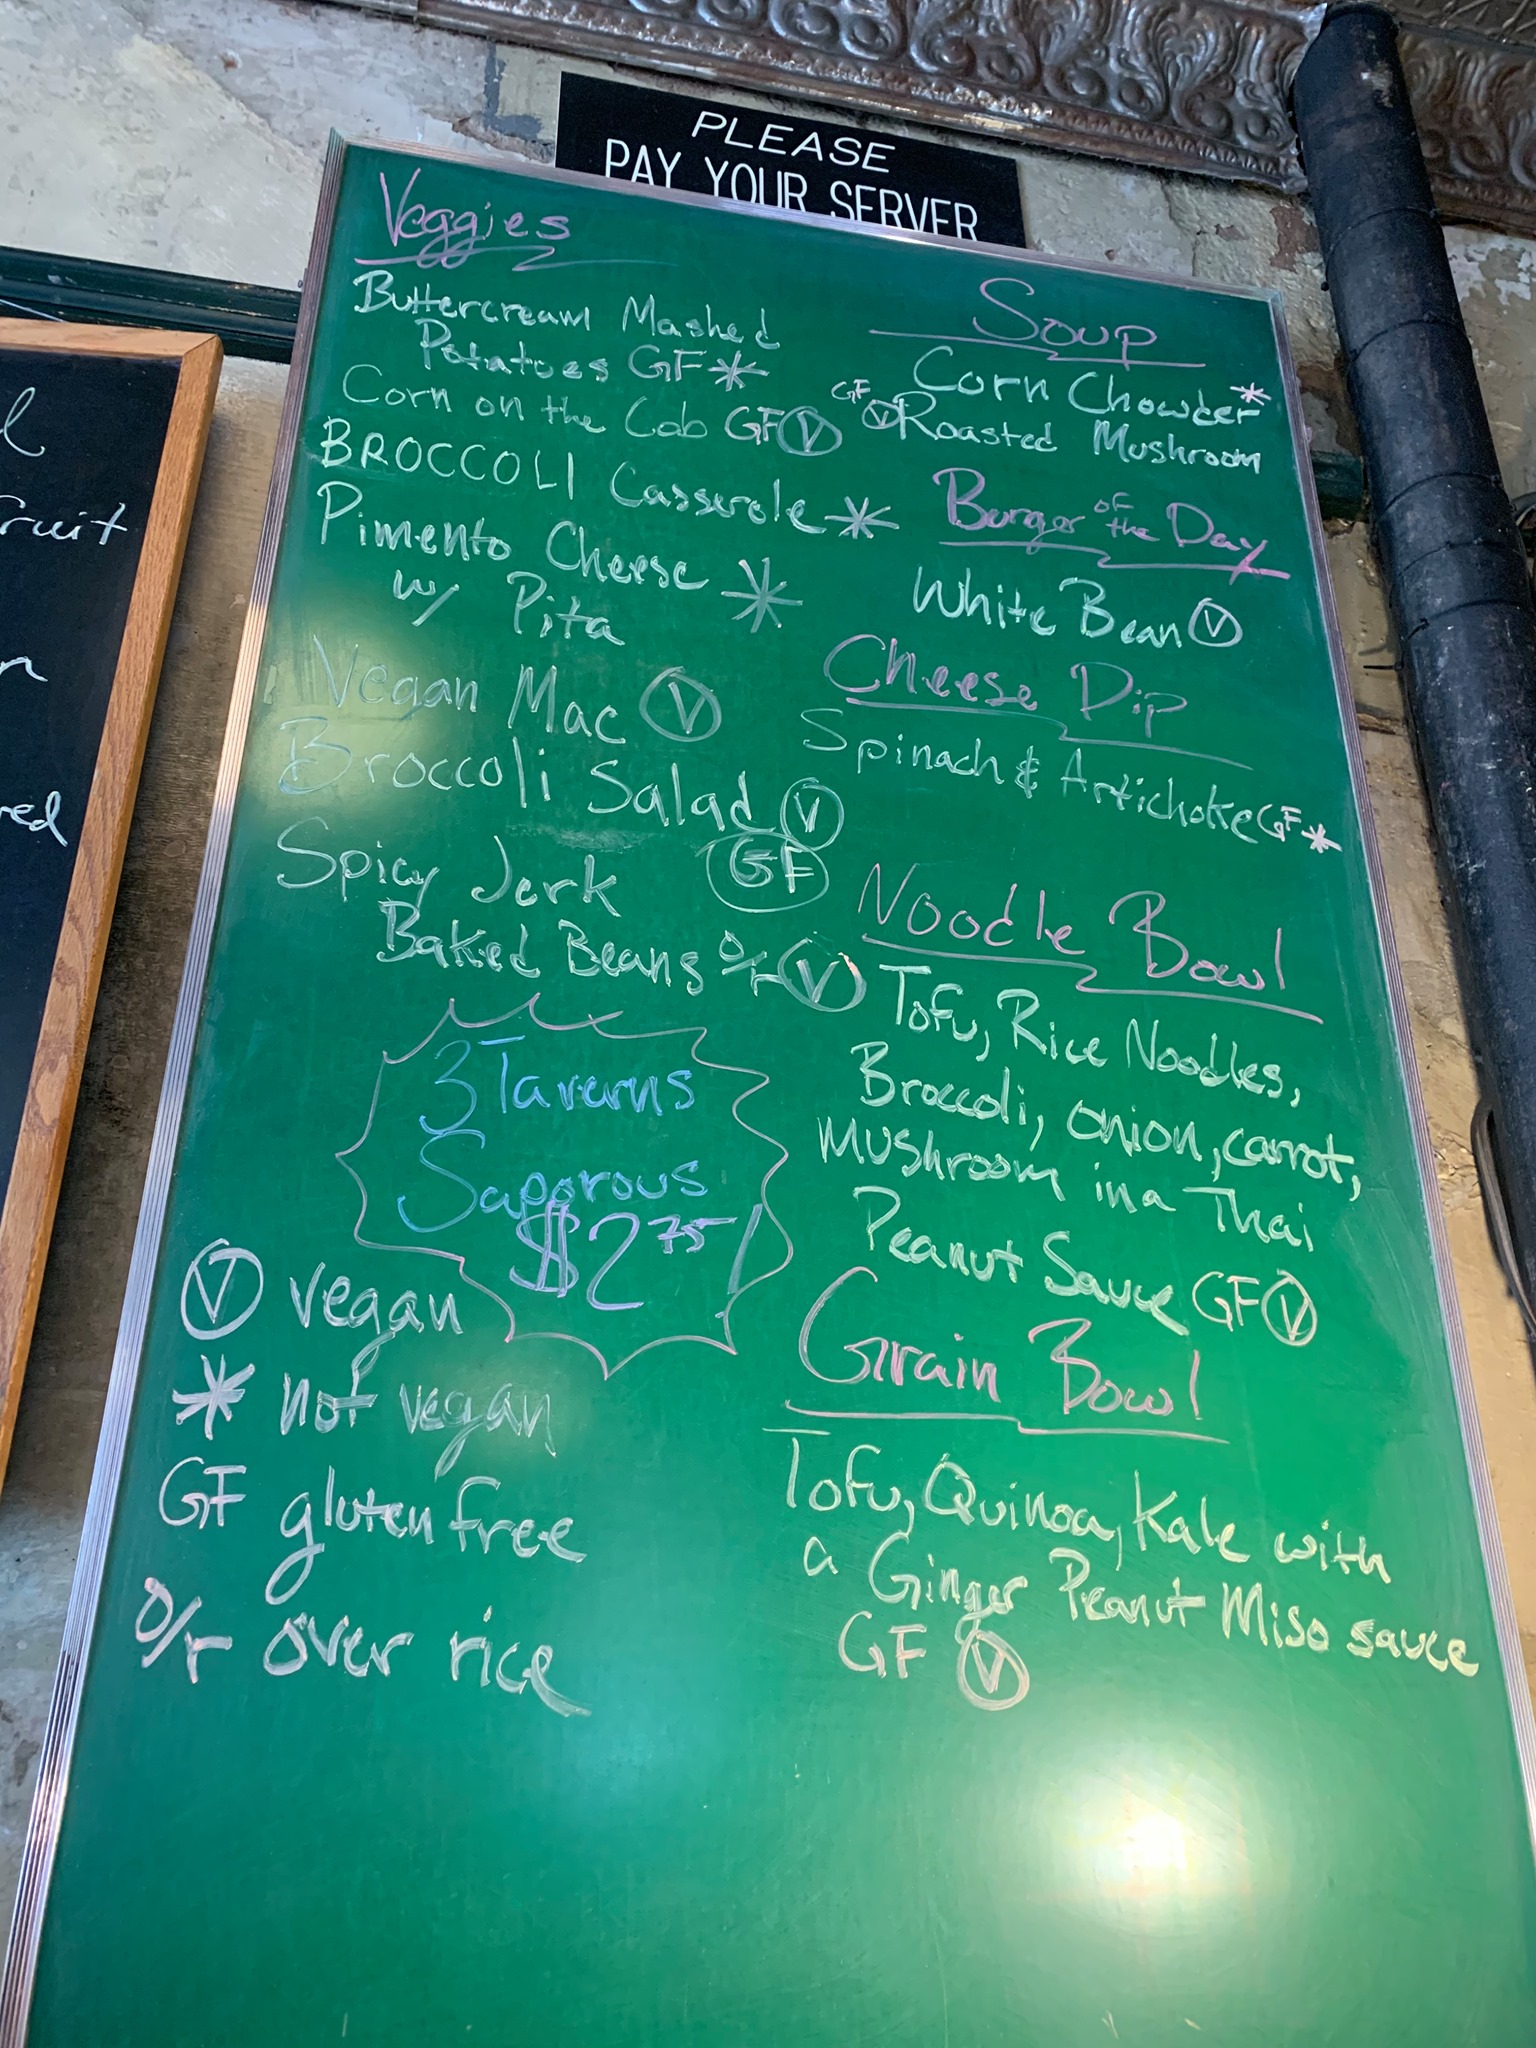 PLEASE
PAY YOUR SERVER
Veggies
Buttercream Mashed
Potatoes GF *
Corn on the Cob GF Ⓥ
BROCCOLI Casserole *
Pimento Cheese *
w/ Pita
Vegan Mac Ⓥ
Broccoli Salad Ⓥ
GF
Spicy Jerk
Baked Beans o/r Ⓥ
3 Taverns
Saporous
$2.75
Ⓥ vegan
* not vegan
GF gluten free
o/r over rice
Soup
Corn Chowder *
GF Ⓥ Roasted Mushroom
Burger of the Day
White Bean Ⓥ
Cheese Dip
Spinach & Artichoke GF *
Noodle Bowl
Tofu, Rice Noodles,
Broccoli, onion, carrot,
Mushroom in a Thai
Peanut Sauce GF Ⓥ
Grain Bowl
Tofu, Quinoa, Kale with
a Ginger Peanut Miso sauce
GF Ⓥ